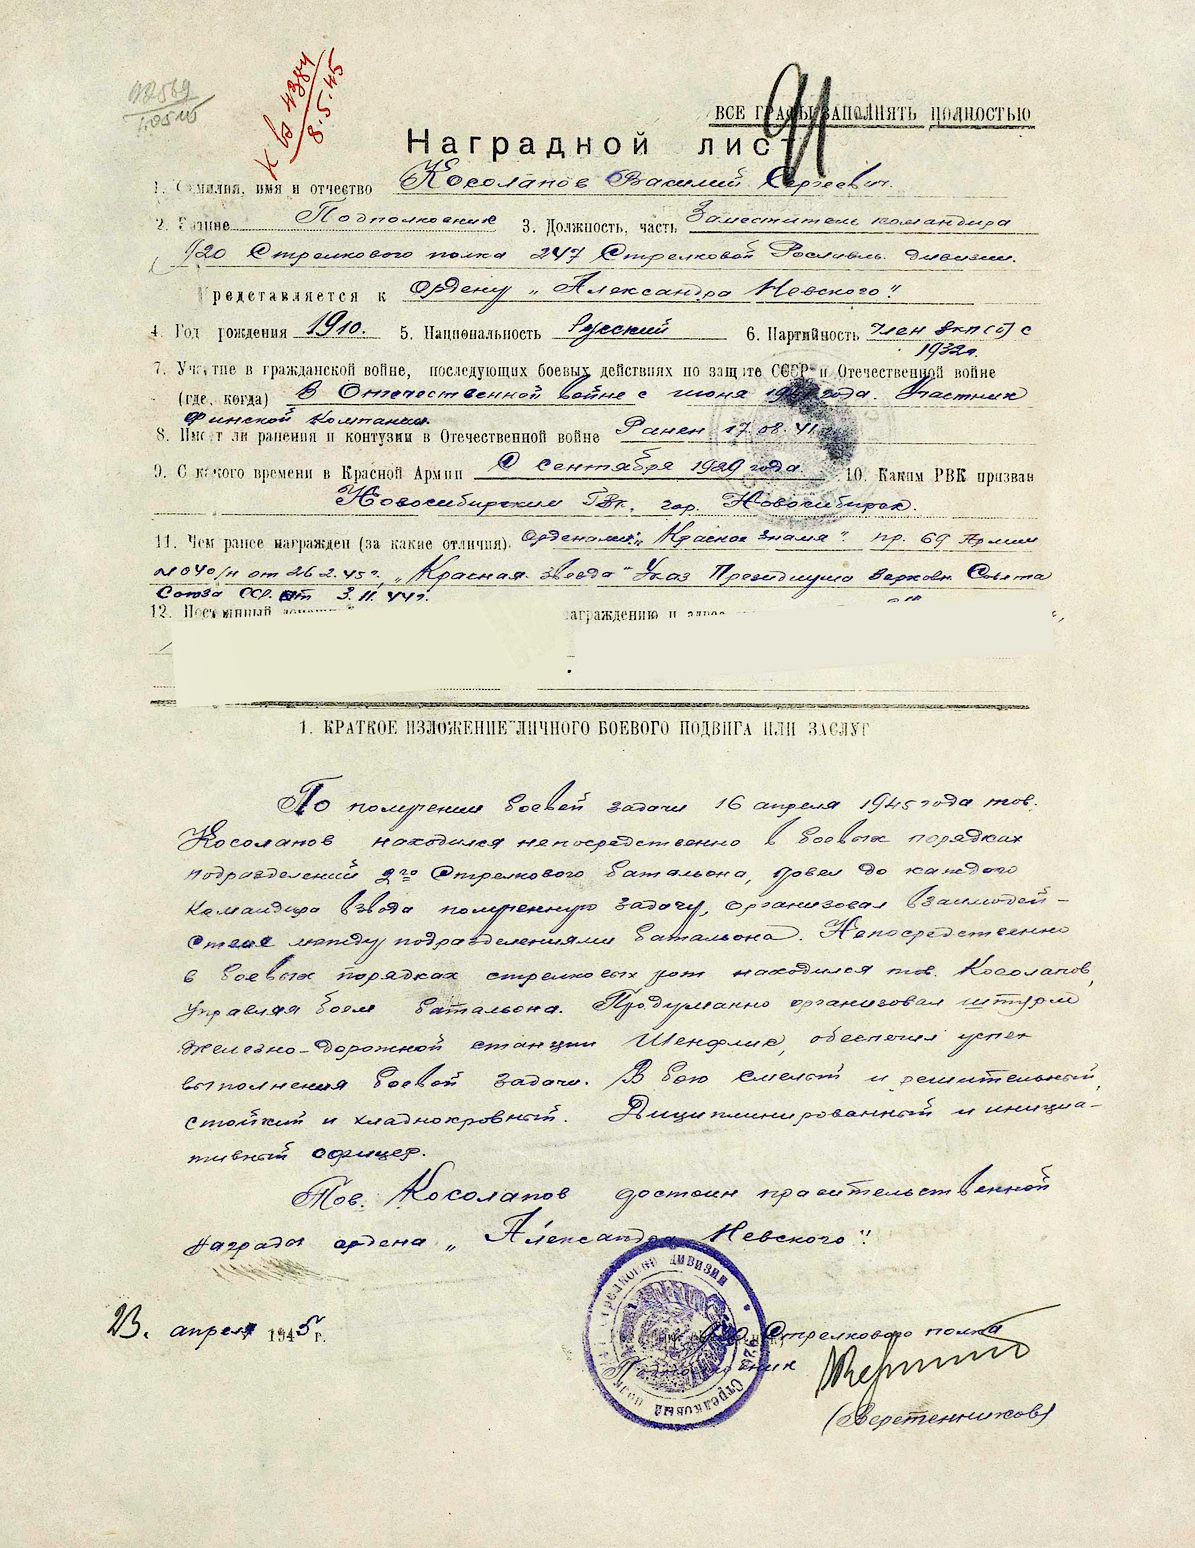 92569
1.05.45
К вв 4384
8.5.45
91
ВСЕ ГРАФЫ ЗАПОЛНЯТЬ ПОЛНОСТЬЮ
Наградной лист
1. Фамилия, имя и отчество Косолапов Василий Сергеевич.
2. Звание Подполковник 3. Должность, часть Заместитель командира
920 Стрелкового полка 247 Стрелковой Рославль. дивизии.
Представляется к Ордену „Александра Невского".
4. Год рождения 1910. 5. Национальность Русский 6. Партийность Член ВКП(б) с
1932г.
7. Участие в гражданской войне, последующих боевых действиях по защите СССР и Отечественной войне
(где, когда) В Отечественной войне с июня 1941 года. Участник
Финской Компании.
8. Имеет ли ранения и контузии в Отечественной войне Ранен 17.08.41 г.
9. С какого времени в Красной Армии С сентября 1929 года. 10. Каким РВК призван
Новосибирским ГВК, гор. Новосибирск.
11. Чем ранее награжден (за какие отличия) Орденами: „Красное знамя" пр. 69 Армии
№040/н от 26.2.45г., „Красная звезда" Указ Президиума Верховн. Совета
Союза ССР. от 3.11.44г.
12. Постоянный награждению и адрес
1. КРАТКОЕ ИЗЛОЖЕНИЕ ЛИЧНОГО БОЕВОГО ПОДВИГА ИЛИ ЗАСЛУГ
По получении боевой задачи 16 апреля 1945 года тов.
Косолапов находился непосредственно в боевых порядках
подразделений 2го Стрелкового батальона, довел до каждого
Командира взвода полученную задачу, организовал взаимодей-
ствие между подразделениями батальона. Непосредственно
в боевых порядках стрелковых рот находился тов. Косолапов,
управляя боем батальона. Продуманно организовал штурм
железно-дорожной станции Шенфлис, обеспечил успех
выполнения боевой задачи. В бою смелый и решительный,
стойкий и хладнокровный. Дициплинированный и инициа-
тивный офицер.
Тов. Косолапов достоин правительственной
награды ордена „Александра Невского".
23. апреля 1945 г.
920 Стрелкового полка
Подполковник
(Веретенников)
920 Стрелковый полк стрелковой дивизии